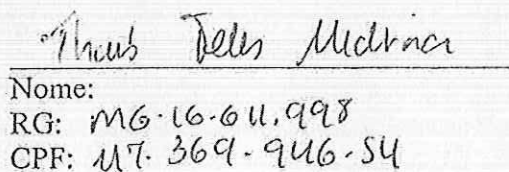 Thais Teles Medina
Nome:
RG: MG-16-611.998
CPF: 117.369.946-54